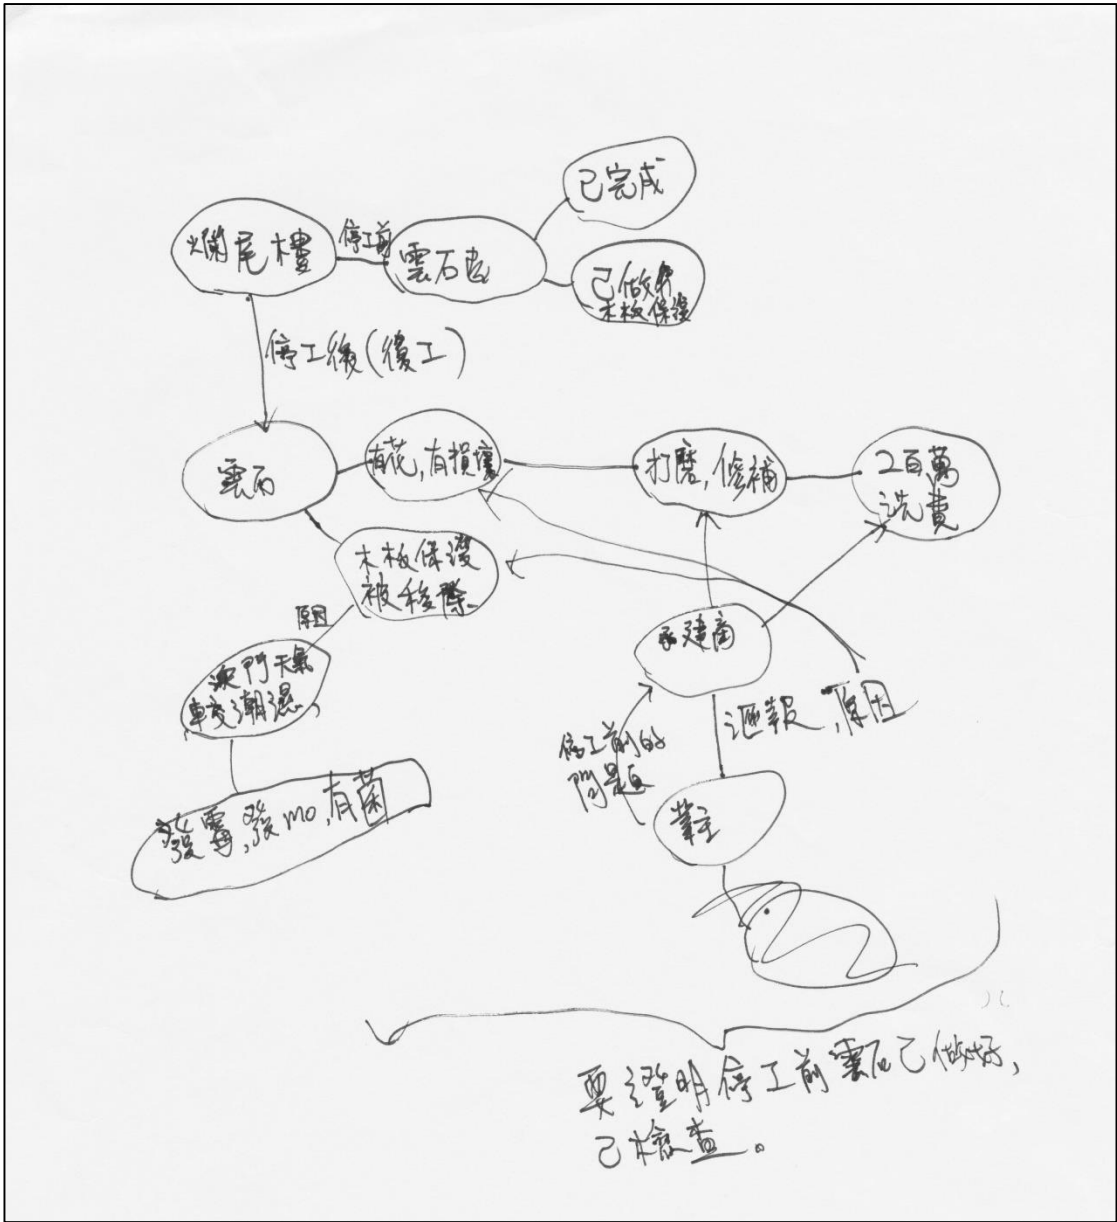 已完成
爛尾樓
停工前
雲石
已做好
木板保護
停工後(復工)
雲石
有花,有損壞
打磨,修補
2百萬
洗費
木板保護
被移除
原因
澳門天氣
較潮濕
發霉,發mo,有菌
承建商
匯報,原因
停工前的
問題
業主
要證明停工前雲石已做好,
已檢查。